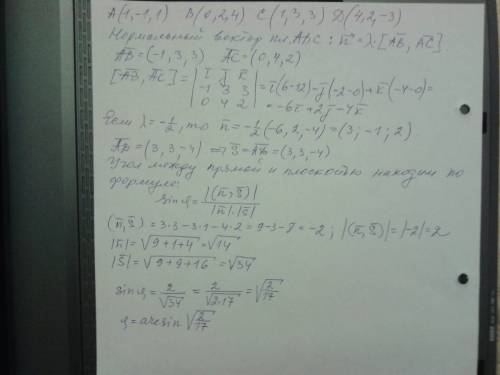 A(1,-1,1) B(0,2,4) C(1,3,3) D(4,2,-3)
Нормальный вектор пл.ABC: n̄ = λ·[A̅B̅, A̅C̅]
A̅B̅ = (-1, 3, 3) A̅C̅ = (0, 4, 2)
[A̅B̅, A̅C̅] = | i j k; -1 3 3; 0 4 2 | = i̅(6-12) - j̅(-2-0) + k̅(-4-0) =
= -6i̅ + 2j̅ - 4k̅
Если λ = -1/2, то n̄ = -1/2(-6, 2, -4) = (3; -1; 2)
A̅D̅ = (3, 3, -4) ⟹ S̅ = A̅D̅ = (3, 3, -4)
Угол между прямой и плоскостью находим по
формуле:
sin φ = |(n̄, S̅)| / |n̄|·|S̅|
(n̄, S̅) = 3·3 - 3·1 - 4·2 = 9-3-8 = -2 ; |(n̄, S̅)| = |-2| = 2
|n̄| = √(9+1+4) = √14
|S̅| = √(9+9+16) = √34
sin φ = 2/√34 = 2/√(2·17) = √(2/17)
φ = arcsin √(2/17)